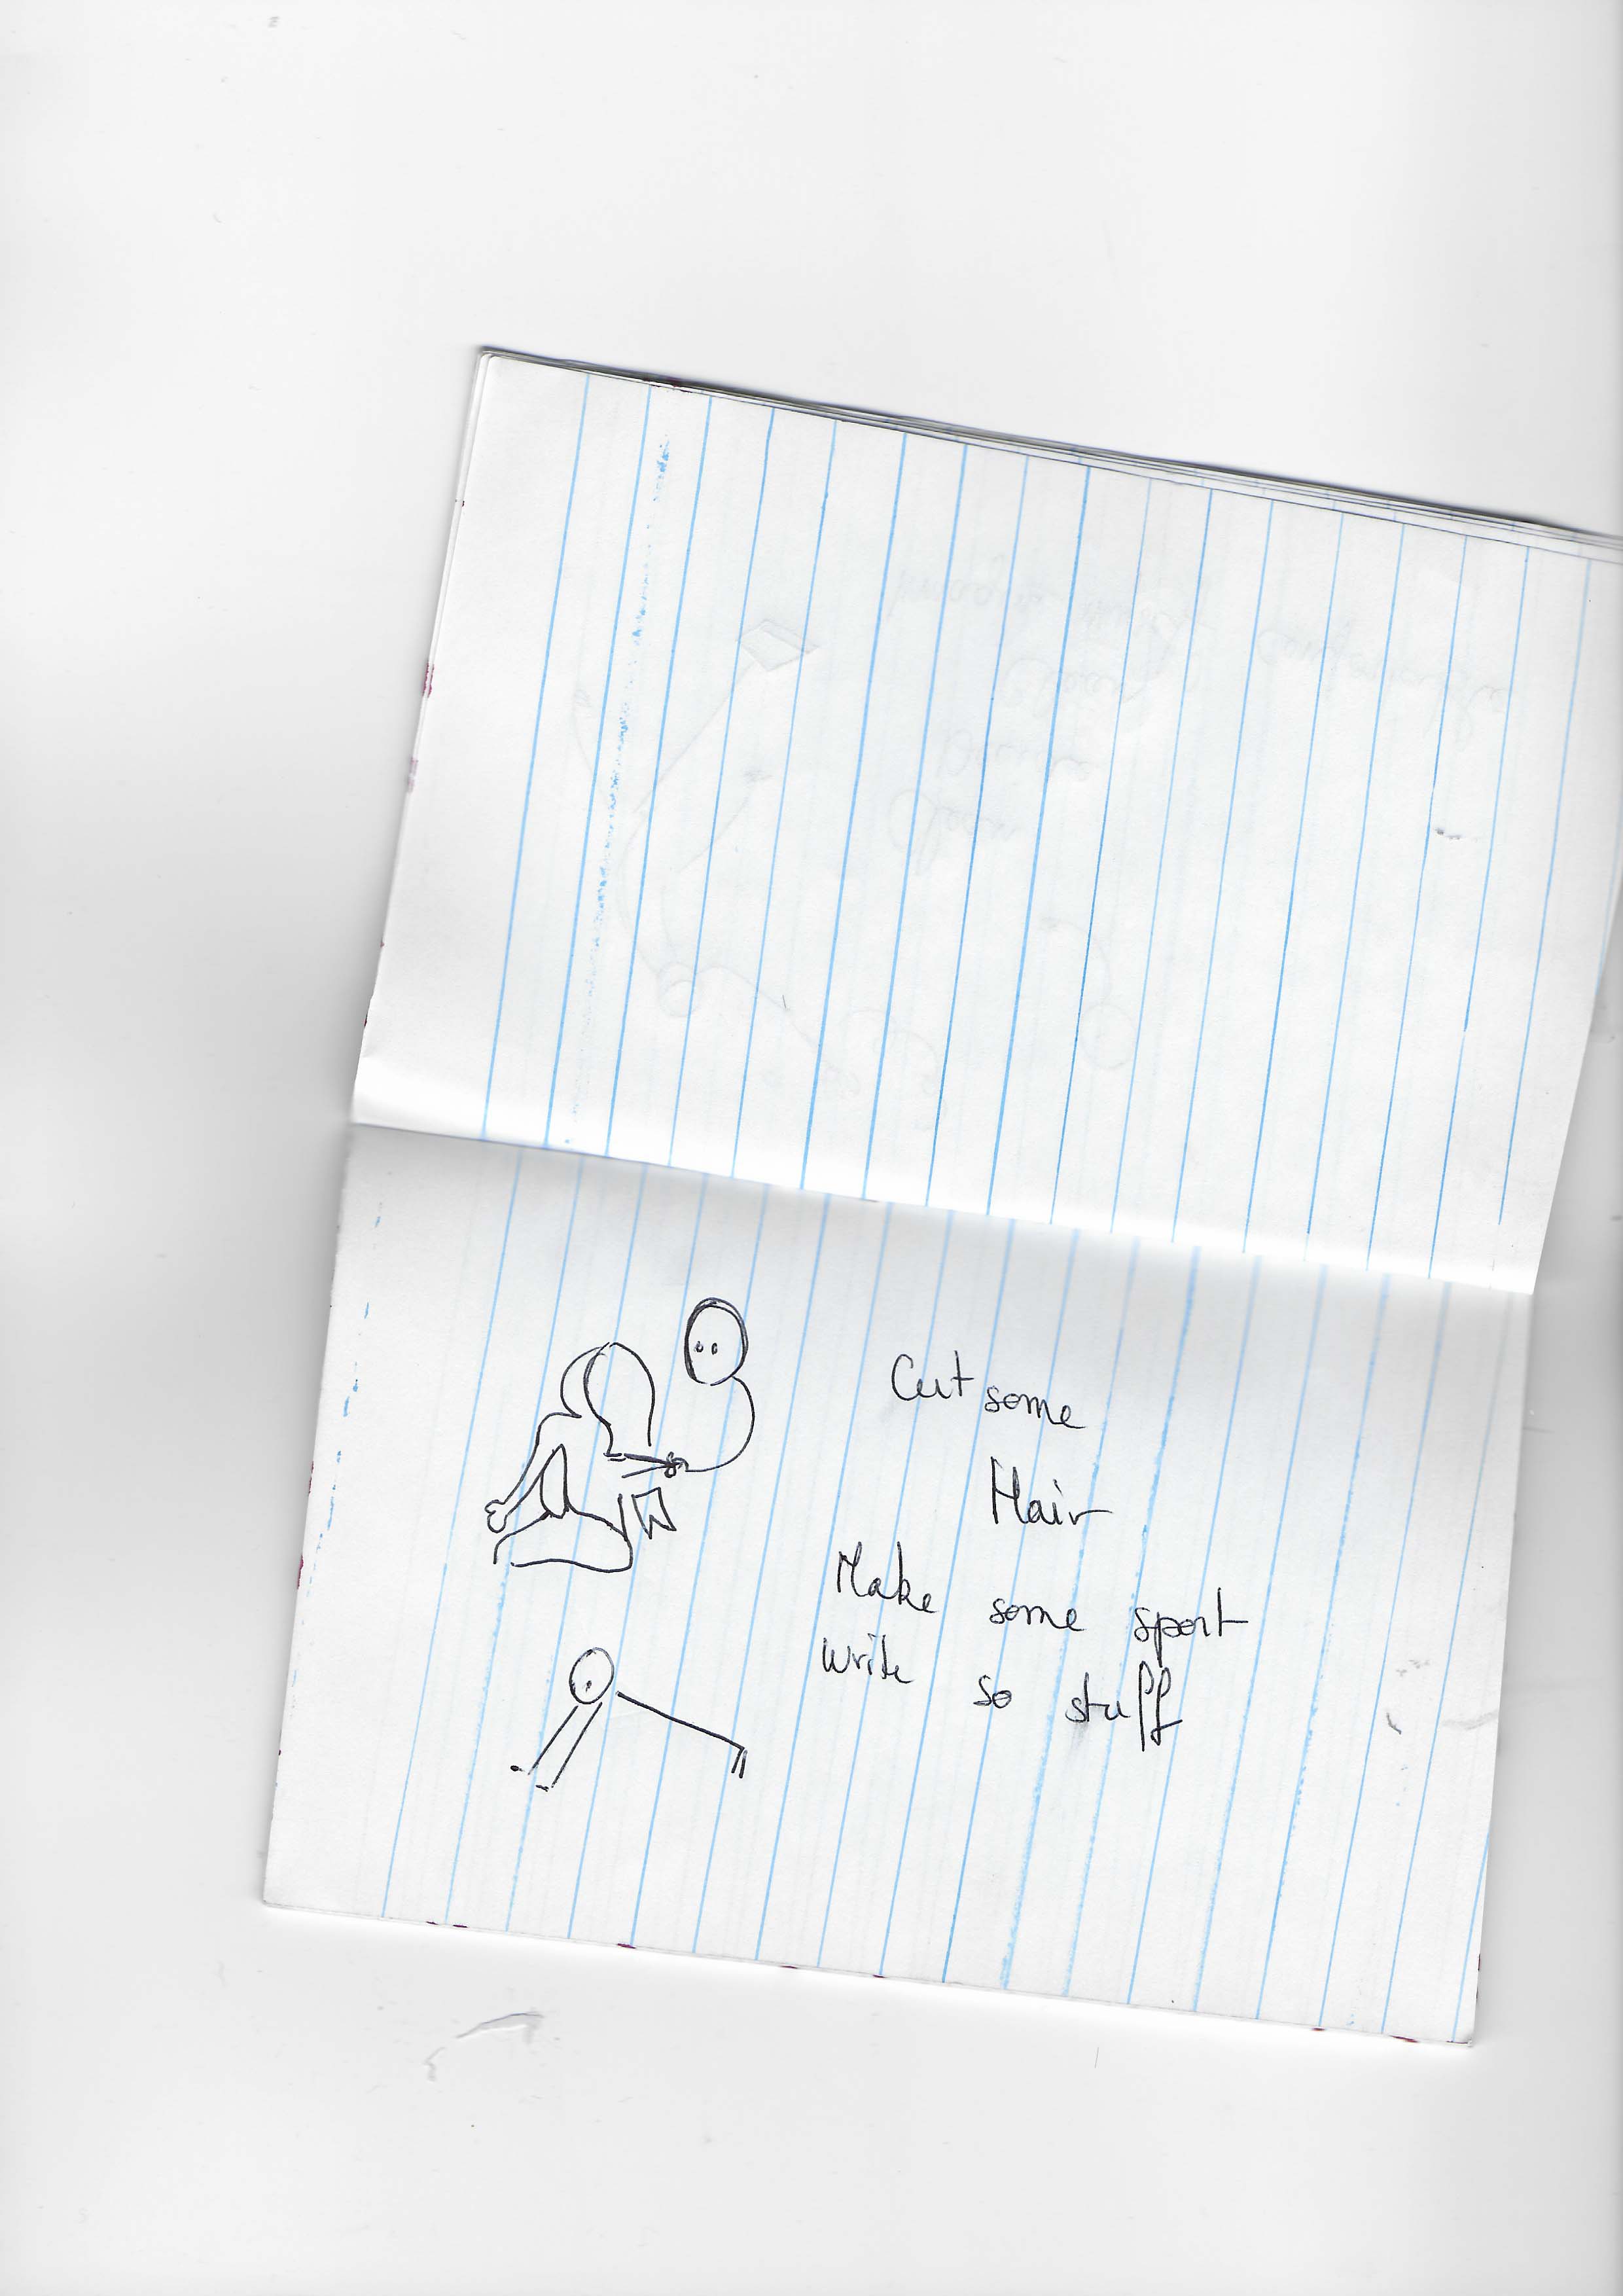 Cut some
Hair
Make some sport
write so stuff